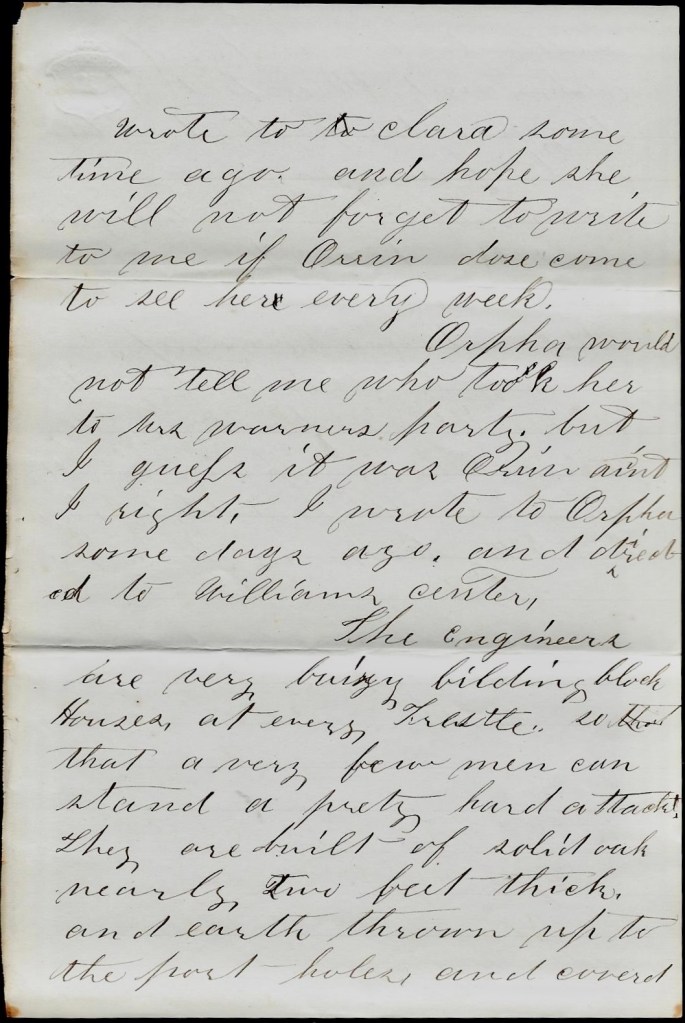 wrote to to clara some
time ago. and hope she
will not forget to write
to me if Orrin dose come
to see here every week.
Orpha would
not tell me who took her
to Mrs warners party. but
I guess it was Orrin aint
I right, I wrote to Orpha
some days ago. and direct
ed to Williams center,
The Engineers
are very buisy bilding block
Houses, at every, Trestle. so that
that a very few men can
stand a prety hard attack.
They are built of solid oak
nearly, Two feet thick.
and earth thrown up to
the port holes, and coverd